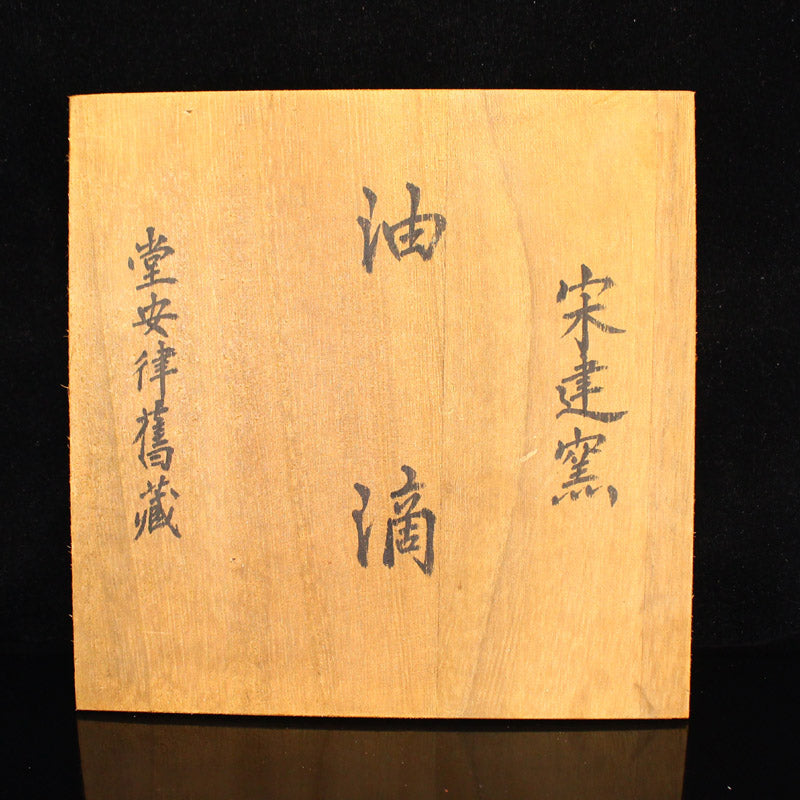 宋建窯
油滴
堂安律舊藏